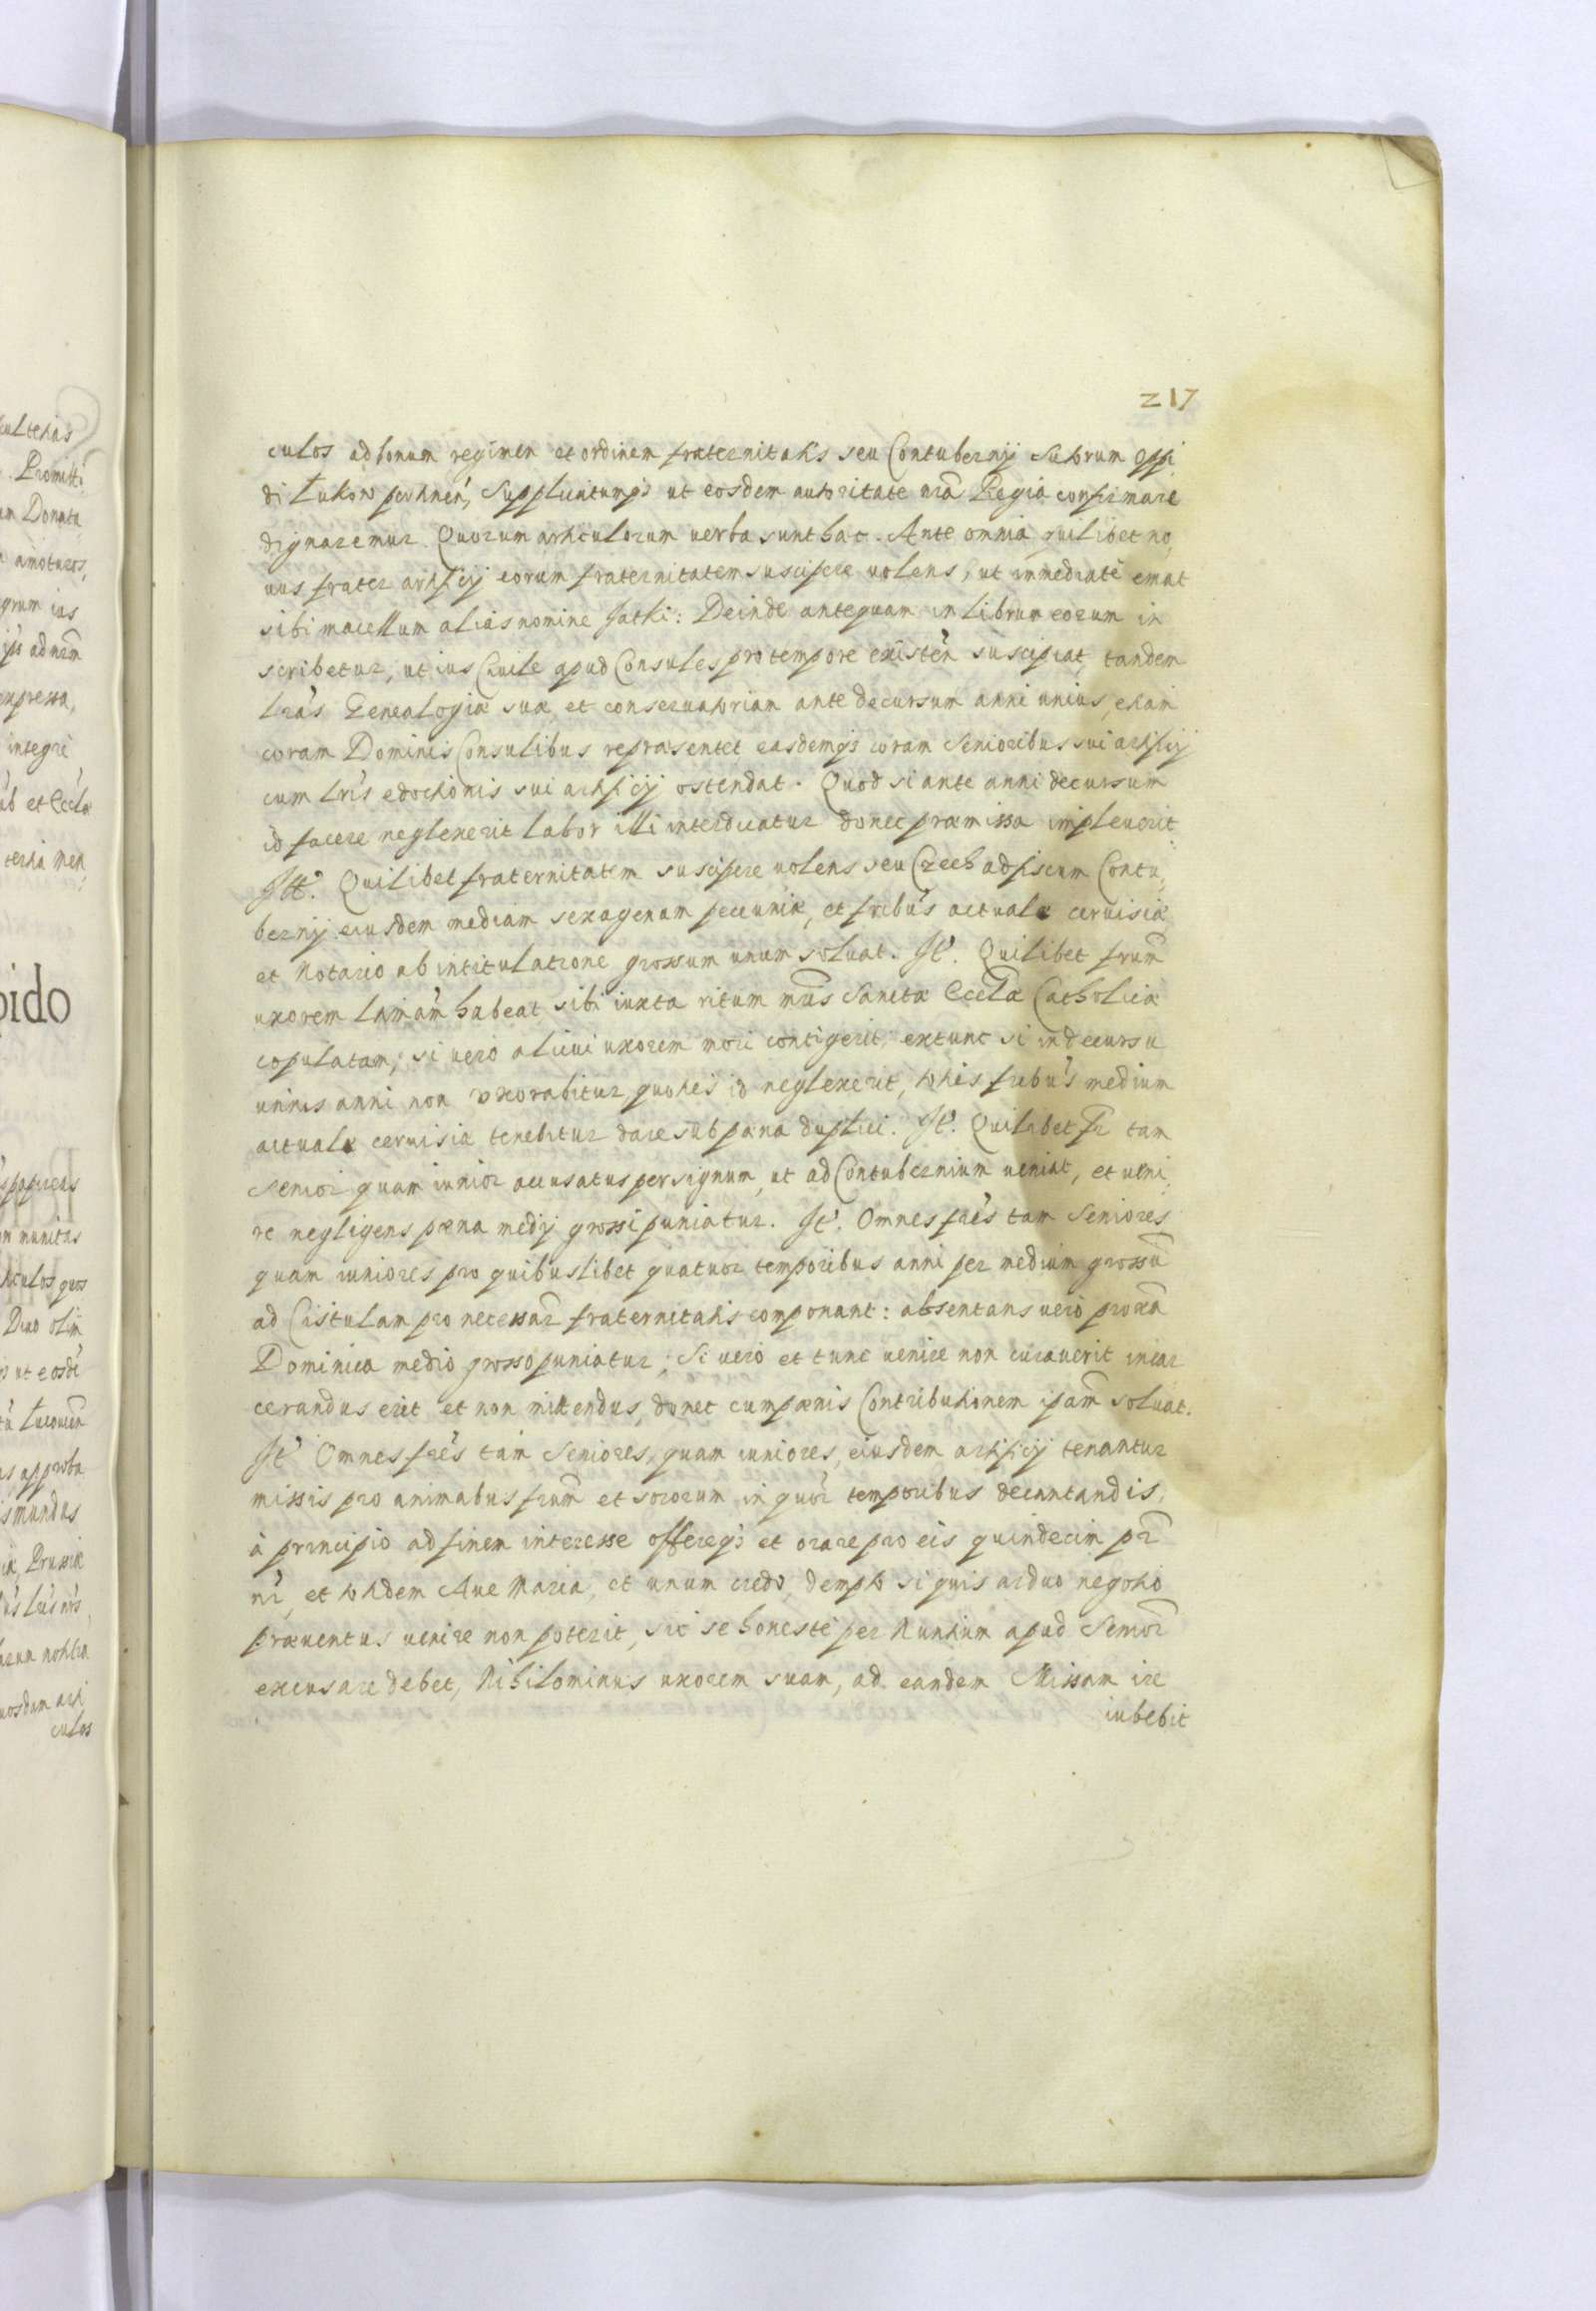 217
culos ad bonum regimen et ordinem fraternitatis seu Contubernij Sutorum oppi,
di Łukow pertinen, Supplicatumq's ut eosdem autoritate nrã Regia confirmare
dignaremur. Quorum articulorum uerba sunt hæc. Ante omnia quilibet no,
uus frater artificij eorum fraternitatem suscipere uolens, ut immediatè emat
sibi macellum alias nomine Jatki: Deinde antequam in librum eorum in
scribetur, ut ius Ciuile apud Consules pro tempore existen suscipiat, tandem
lrás Genealogiæ suæ, et conseruatoriam ante decursum anni unius, etiam
coram Dominis Consulibus repræsentet easdemq's coram Senioribus sui artificij
cum lris edoctionis sui artificij ostendat. Quod si ante anni decursum
id facere neglexerit labor illi interdicatur donec præmissa impleuerit.
Itt. Quilibet fraternitatem suscipere uolens seu Czech ad fiscum Contu,
bernij eiusdem mediam sexagenam pecuniæ, et fribús actuale ceruisiæ
et Notario ab intitulatione grossum unum soluat. It. Quilibet frum
uxorem latinam habeat sibi iuxta ritum mris Sanctæ Eccłæ Catholicæ
copulatam, si uerò alicui uxorem mori contigerit: extunc si in decursu
unius anni non uxorabitur quoties id neglexerit, toties fribús medium
actuale ceruisiæ tenebitur dare sub pæna duplici. It. Quilibet fr tam
Senior quam iunior accusatus per signum, ut ad Contubernium ueniat, et ueni,
re negligens pæna medij grossi puniatur. It. Omnes frés tam Seniores
quam iuniores pro quibuslibet quatuor temporibus anni per medium grossũ
ad Cistulam pro necessar fraternitatis componant: absentans uerò proxã
Dominica medio grosso puniatur; Si uerò et tunc uenire non curauerit incar
cerandus erit et non mittendus, donec cum pænis Contributionem ipsam soluat.
It. Omnes frés tam Seniores, quam iuniores, eiusdem artificij tenantur
missis pro animabus frum et sororum in quor temporibus decantandis,
à principio ad finem interesse offereq's et orare pro eis quindecim pr
nr, et totidem Aue Maria, et unum credo, dempto si quis arduo negotio
præuentus uenire non poterit, sic se honestè per Nuntium apud Senior
excusare debet, Nihilominus uxorem suam, ad eandem Missam ire
iubebit